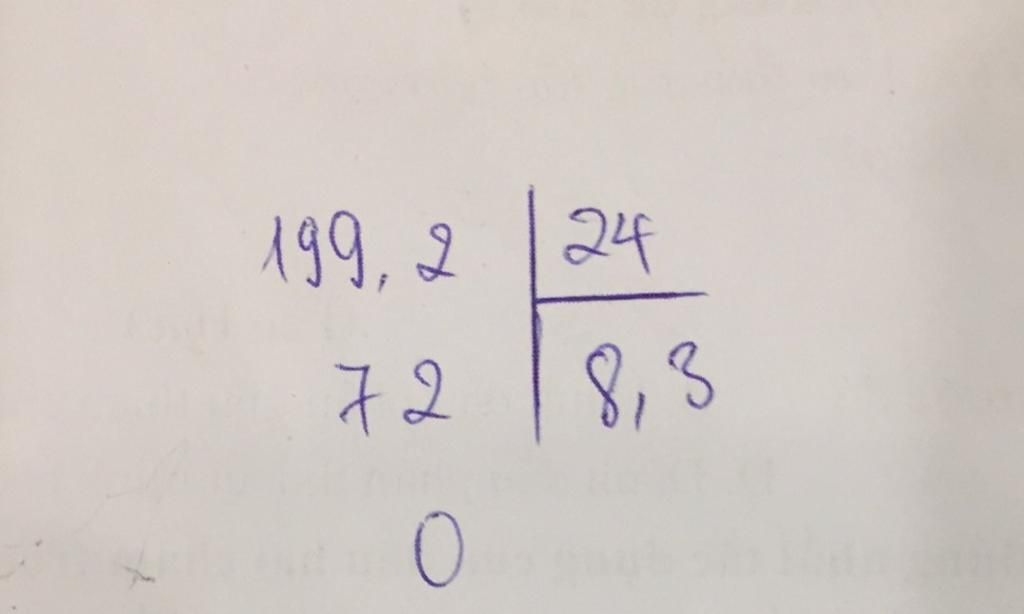 199,2 24
72 8,3
0